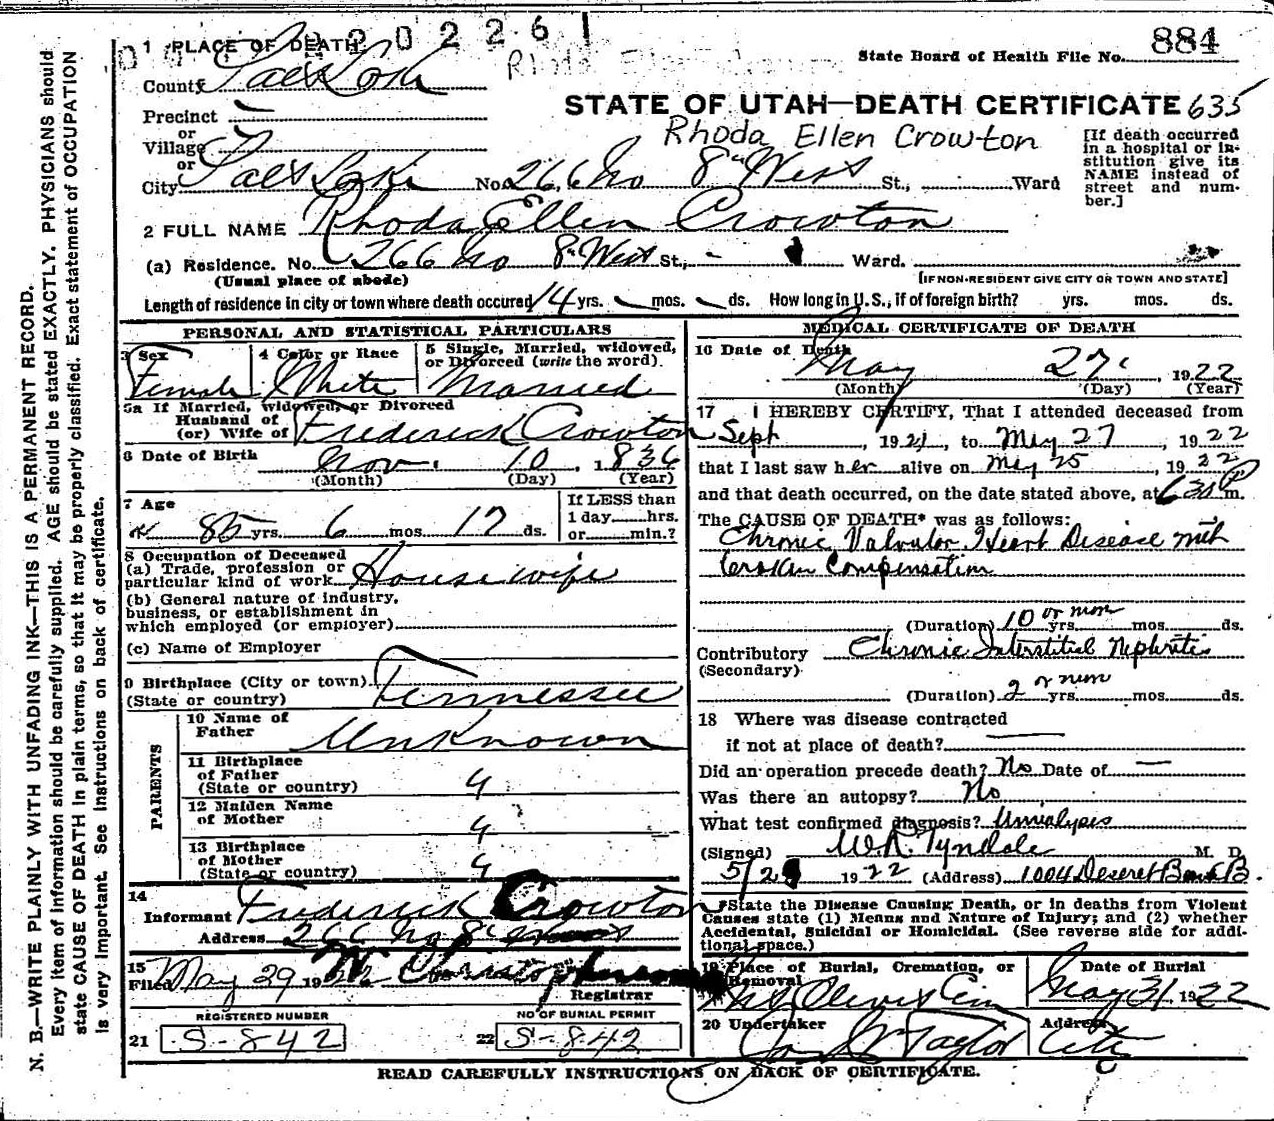 N. B.—WRITE PLAINLY WITH UNFADING INK—THIS IS A PERMANENT RECORD.
Every item of information should be carefully supplied. AGE should be stated EXACTLY. PHYSICIANS should
state CAUSE OF DEATH in plain terms, so that it may be properly classified. Exact statement of OCCUPATION
is very important. See instructions on back of certificate.
20226
State Board of Health File No. 884
1 PLACE OF DEATH
Rhoda Ellen
County Salt Lake
STATE OF UTAH—DEATH CERTIFICATE 635
Precinct
or
Rhoda Ellen Crowton
Village
or
City Salt Lake No. 266 No 8th West St., Ward
[If death occurred
in a hospital or in-
stitution give its
NAME instead of
street and num-
ber.]
2 FULL NAME Rhoda Ellen Crowton
(a) Residence. No. 266 No 8th West St., - Ward.
(Usual place of abode)
[IF NON-RESIDENT GIVE CITY OR TOWN AND STATE]
Length of residence in city or town where death occured 14 yrs. - mos. - ds. How long in U.S., if of foreign birth? yrs. mos. ds.
PERSONAL AND STATISTICAL PARTICULARS
3 Sex
Female
4 Color or Race
White
5 Single, Married, widowed,
or Divorced (write the word).
Married
5a If Married, widowed, or Divorced
Husband of
(or) Wife of Frederick Crowton
6 Date of Birth Nov. 10, 1836
(Month) (Day) (Year)
7 Age
85 yrs. 6 mos. 17 ds.
If LESS than
1 day hrs.
or min.?
8 Occupation of Deceased
(a) Trade, profession or
particular kind of work Housewife
(b) General nature of industry,
business, or establishment in
which employed (or employer)
(c) Name of Employer
9 Birthplace (City or town)
(State or country) Tennessee
PARENTS
10 Name of
Father Unknown
11 Birthplace
of Father
(State or country) 4
12 Maiden Name
of Mother 4
13 Birthplace
of Mother
(State or country) 4
14
Informant Frederick Crowton
Address 266 No 8th West
15
Filed May 29 1922 Christopherson
Registrar
REGISTERED NUMBER
21 S-842
NO OF BURIAL PERMIT
22 S-842
MEDICAL CERTIFICATE OF DEATH
16 Date of Death
May 27, 1922
(Month) (Day) (Year)
17 I HEREBY CERTIFY, That I attended deceased from
Sept, 1921, to May 27, 1922
that I last saw her alive on May 25, 1922
and that death occurred, on the date stated above, at 630 P m.
The CAUSE OF DEATH* was as follows:
Chronic Valvular Heart Disease with
broken Compensation
(Duration) 10 or mor yrs. mos. ds.
Contributory Chronic Interstitial Nephritis
(Secondary)
(Duration) 2 or mor yrs. mos. ds.
18 Where was disease contracted
if not at place of death?
Did an operation precede death? No Date of —
Was there an autopsy? No
What test confirmed diagnosis? Urinalysis
(Signed) W.R. Tyndale M. D.
5/2 1922 (Address) 1004 Deseret Bank B.
*State the Disease Causing Death, or in deaths from Violent
Causes state (1) Means and Nature of Injury; and (2) whether
Accidental, Suicidal or Homicidal. (See reverse side for addi-
tional space.)
19 Place of Burial, Cremation, or
Removal
Mt Olivet Cem
Date of Burial
May 31 1922
20 Undertaker
Taylor
Address
City
READ CAREFULLY INSTRUCTIONS ON BACK OF CERTIFICATE.